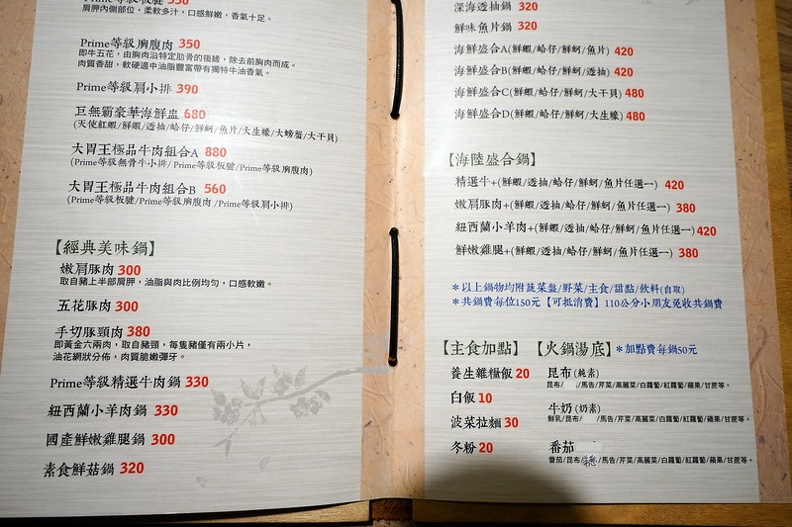 350
肩胛內側部位，柔軟多汁，口感鮮嫩，香氣十足。
Prime等級胸腹肉 350
即牛五花，由胸肉沿特定肋骨的後緣，除去前胸肉而成。
肉質香甜，軟硬適中油脂豐富帶有獨特牛油香氣。
Prime等級肩小排 390
巨無霸豪華海鮮盅 680
(天使紅蝦/鮮蝦/透抽/蛤仔/鮮蚵/魚片/大生蠔/大螃蟹/大干貝)
大胃王極品牛肉組合A 880
(Prime等級無骨牛小排/ Prime等級板腱/Prime等級胸腹肉)
大胃王極品牛肉組合B 560
(Prime等級板腱/Prime等級胸腹肉 /Prime等級肩小排)
【經典美味鍋】
嫩肩豚肉 300
取自豬上半部肩胛，油脂與肉比例均勻，口感軟嫩。
五花豚肉 300
手切豚頸肉 380
即黃金六兩肉，取自豬頸，每隻豬僅有兩小片，
油花網狀分佈，肉質脆嫩彈牙。
Prime等級精選牛肉鍋 330
紐西蘭小羊肉鍋 330
國產鮮嫩雞腿鍋 300
素食鮮菇鍋 320
深海透抽鍋 320
鮮味魚片鍋 320
海鮮盛合A(鮮蝦/蛤仔/鮮蚵/魚片) 420
海鮮盛合B(鮮蝦/蛤仔/鮮蚵/透抽) 420
海鮮盛合C(鮮蝦/蛤仔/鮮蚵/大干貝) 480
海鮮盛合D(鮮蝦/蛤仔/鮮蚵/大生蠔) 480
【海陸盛合鍋】
精選牛+(鮮蝦/透抽/蛤仔/鮮蚵/魚片任選一) 420
嫩肩豚肉+(鮮蝦/透抽/蛤仔/鮮蚵/魚片任選一) 380
紐西蘭小羊肉+(鮮蝦/透抽/蛤仔/鮮蚵/魚片任選一) 420
鮮嫩雞腿+(鮮蝦/透抽/蛤仔/鮮蚵/魚片任選一) 380
＊以上鍋物均附蔬菜盤/野菜/主食/甜點/飲料(自取)
＊共鍋費每位150元【可抵消費】110公分小朋友免收共鍋費
【主食加點】
養生雜糧飯 20
白飯 10
菠菜拉麵 30
冬粉 20
【火鍋湯底】＊加點費每鍋50元
昆布(純素)
昆布/ /馬告/芹菜/高麗菜/白蘿蔔/紅蘿蔔/蘋果/甘蔗等。
牛奶(奶素)
鮮乳/昆布/ /馬告/芹菜/高麗菜/白蘿蔔/紅蘿蔔/蘋果/甘蔗等。
番茄
番茄/昆布/ /馬告/芹菜/高麗菜/白蘿蔔/紅蘿蔔/蘋果/甘蔗等。